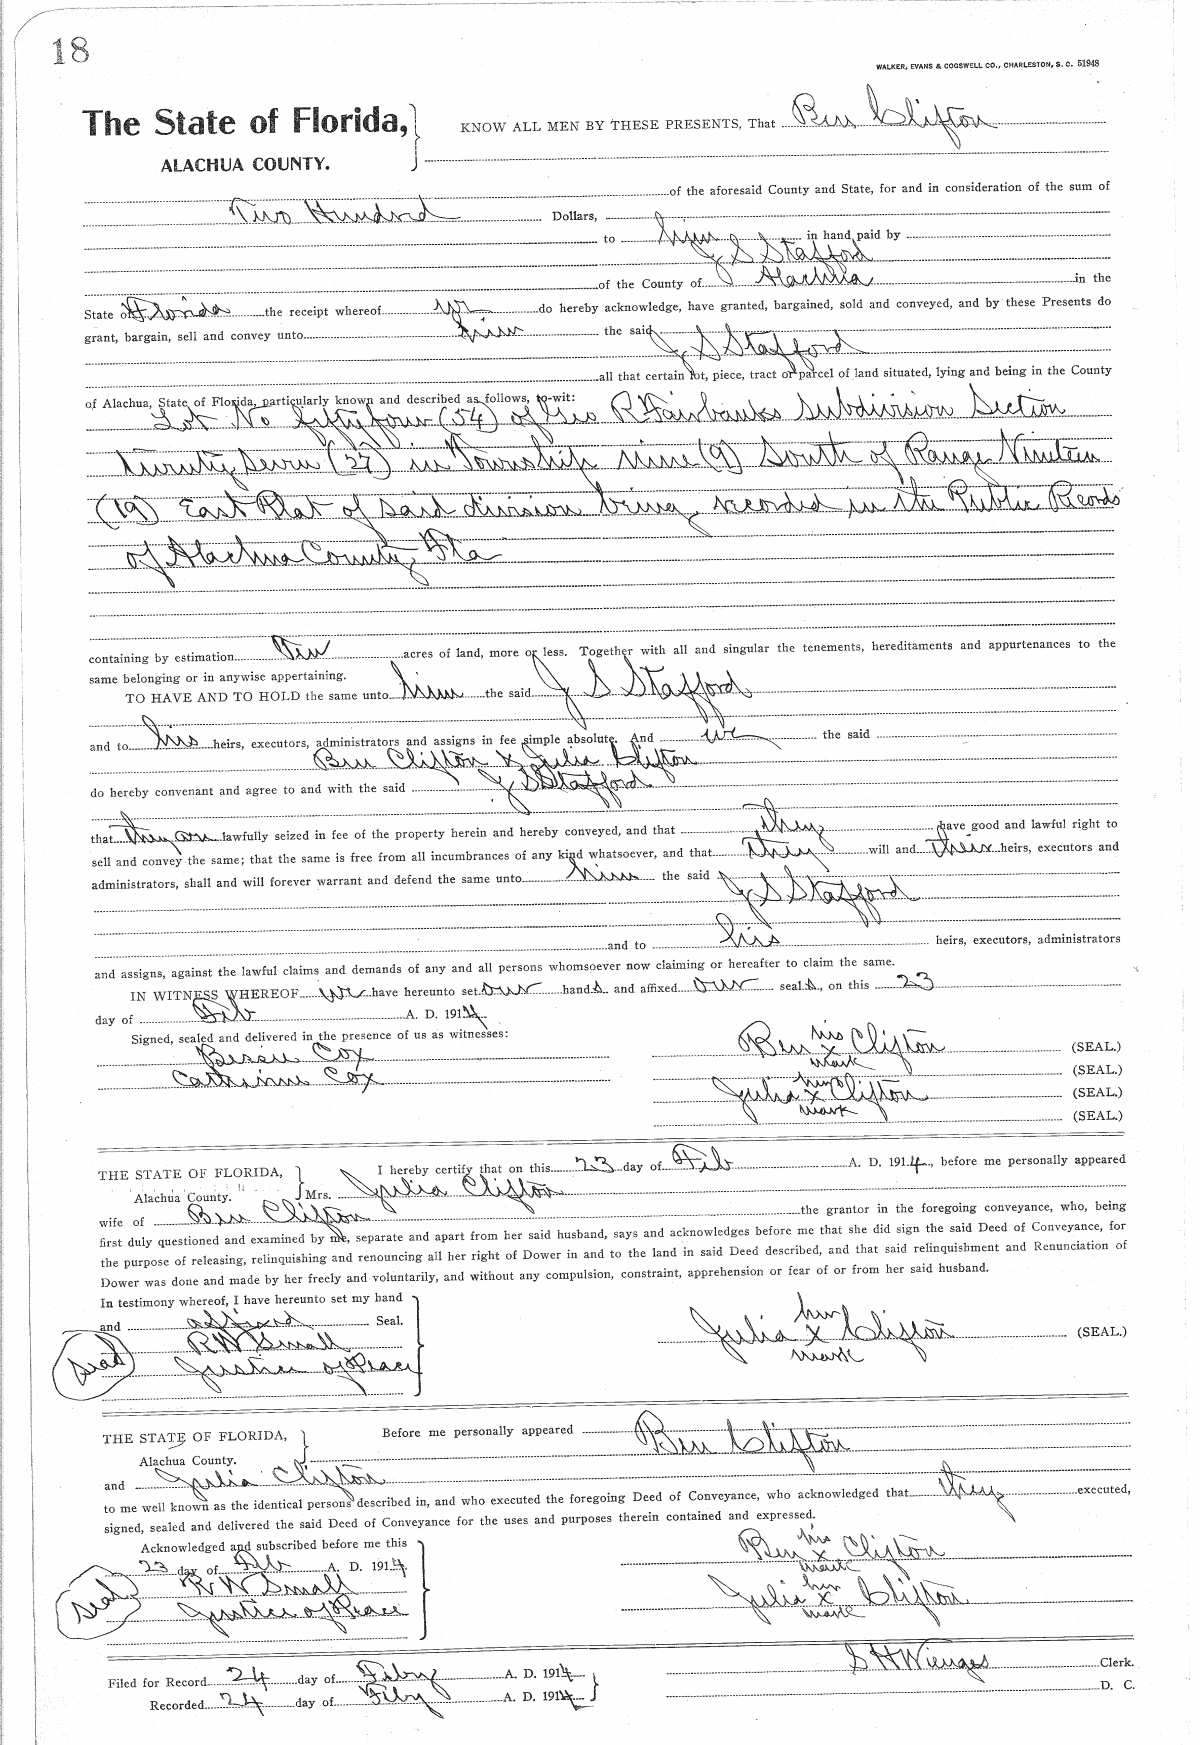 18
WALKER, EVANS & COGSWELL CO., CHARLESTON, S. C. 51948
The State of Florida,
ALACHUA COUNTY.
KNOW ALL MEN BY THESE PRESENTS, That Ben Clifton
of the aforesaid County and State, for and in consideration of the sum of
Two Hundred Dollars,
to him in hand paid by
J S Stafford
of the County of Alachua in the
State of Florida the receipt whereof we do hereby acknowledge, have granted, bargained, sold and conveyed, and by these Presents do
grant, bargain, sell and convey unto him the said
J S Stafford
all that certain lot, piece, tract or parcel of land situated, lying and being in the County
of Alachua, State of Florida, particularly known and described as follows, to-wit:
Lot No fifty four (54) of Geo R Fairbanks Subdivision Section
twenty Seven (27) in Township nine (9) South of Range Nineteen
(19) East Plat of said division being recorded in the Public Records
of Alachua County, Fla
containing by estimation Ten acres of land, more or less. Together with all and singular the tenements, hereditaments and appurtenances to the
same belonging or in anywise appertaining.
TO HAVE AND TO HOLD the same unto him the said J S Stafford
and to his heirs, executors, administrators and assigns in fee simple absolute. And we the said
Ben Clifton & Julia Clifton
do hereby convenant and agree to and with the said J S Stafford
that they are lawfully seized in fee of the property herein and hereby conveyed, and that they have good and lawful right to
sell and convey the same; that the same is free from all incumbrances of any kind whatsoever, and that they will and their heirs, executors and
administrators, shall and will forever warrant and defend the same unto him the said J S Stafford
and to his heirs, executors, administrators
and assigns, against the lawful claims and demands of any and all persons whomsoever now claiming or hereafter to claim the same.
IN WITNESS WHEREOF we have hereunto set our hands and affixed our seals, on this 23
day of Feb A. D. 1914
Signed, sealed and delivered in the presence of us as witnesses:
Bessie Cox
Catherine Cox
his
Ben x Clifton (SEAL.)
mark (SEAL.)
her
Julia x Clifton (SEAL.)
mark (SEAL.)
THE STATE OF FLORIDA,
Alachua County.
I hereby certify that on this 23 day of Feb A. D. 1914, before me personally appeared
Mrs. Julia Clifton
wife of Ben Clifton the grantor in the foregoing conveyance, who, being
first duly questioned and examined by me, separate and apart from her said husband, says and acknowledges before me that she did sign the said Deed of Conveyance, for
the purpose of releasing, relinquishing and renouncing all her right of Dower in and to the land in said Deed described, and that said relinquishment and Renunciation of
Dower was done and made by her freely and voluntarily, and without any compulsion, constraint, apprehension or fear of or from her said husband.
In testimony whereof, I have hereunto set my hand
and Seal.
R W Small
Justice of Peace
Seal
her
Julia x Clifton (SEAL.)
mark
THE STATE OF FLORIDA,
Alachua County.
Before me personally appeared Ben Clifton
and Julia Clifton
to me well known as the identical persons described in, and who executed the foregoing Deed of Conveyance, who acknowledged that they executed,
signed, sealed and delivered the said Deed of Conveyance for the uses and purposes therein contained and expressed.
Acknowledged and subscribed before me this
23 day of Feb A. D. 1914
R W Small
Justice of Peace
Seal
his
Ben x Clifton
mark
her
Julia x Clifton
mark
Filed for Record 24 day of Feby A. D. 1914
Recorded 24 day of Feby A. D. 1914
S H Wienges Clerk.
D. C.